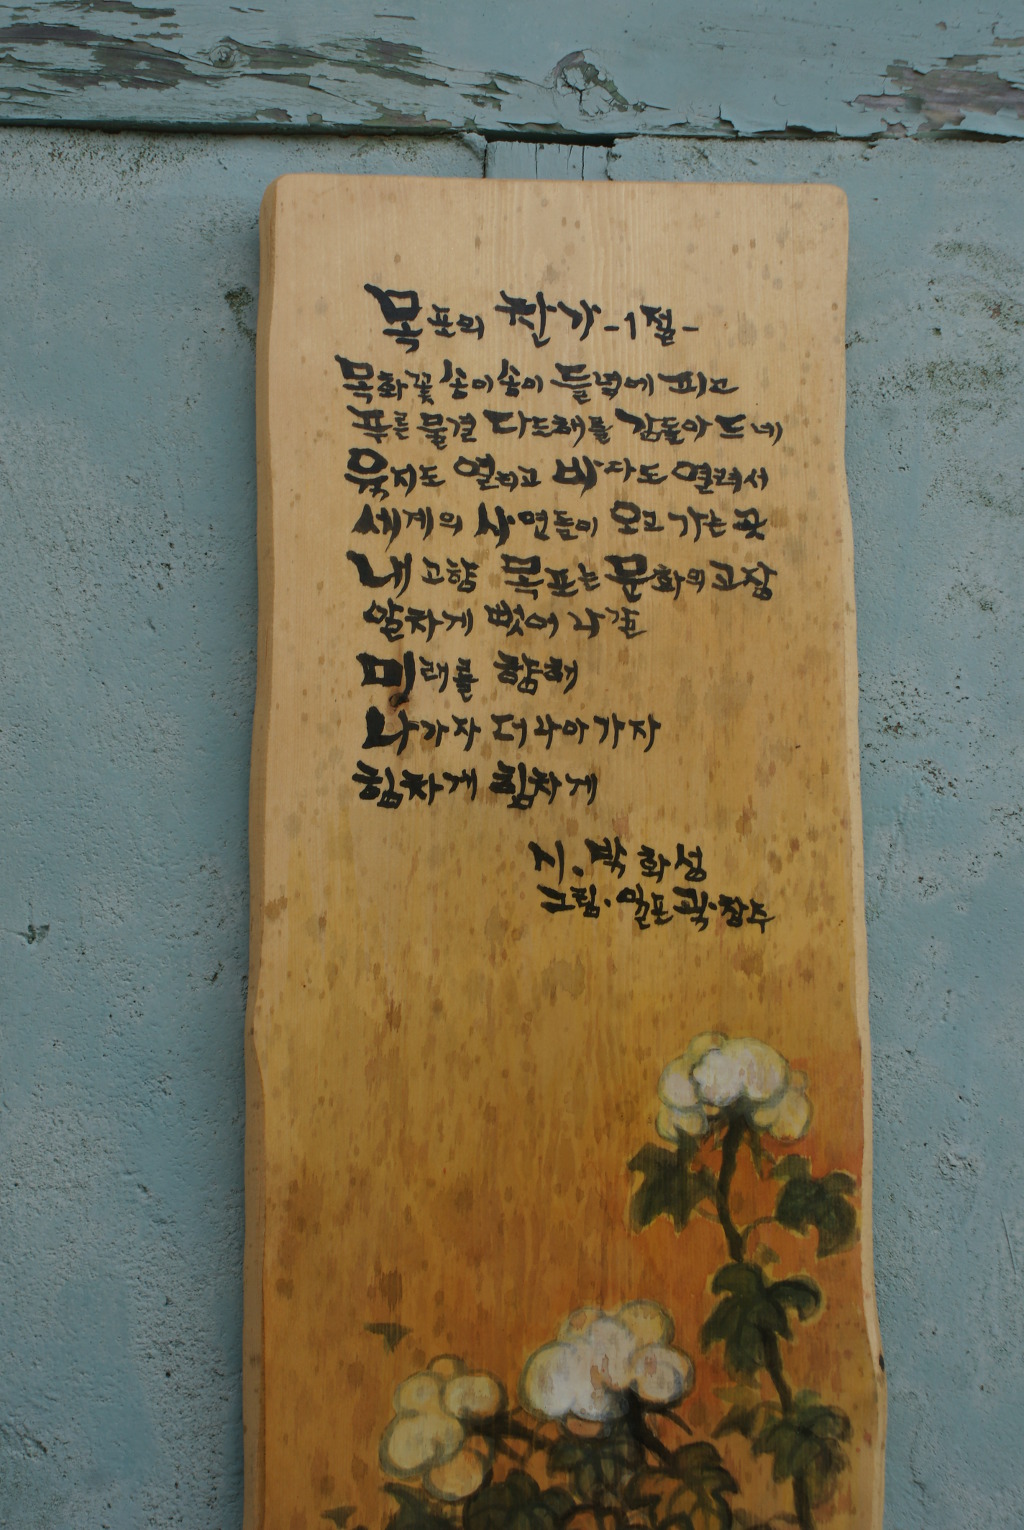 목포의 찬가 -1절-
목화꽃 송이송이 들녘에 피고
푸른 물결 다도해를 감돌아 드네
육지도 열리고 바다도 열려서
세계의 사연들이 오고 가는 곳
내 고향 목포는 문화의 고장
알차게 벗어 나갈
미래를 향해
나가자 더 나아가자
힘차게 힘차게
시. 박화성
그림.